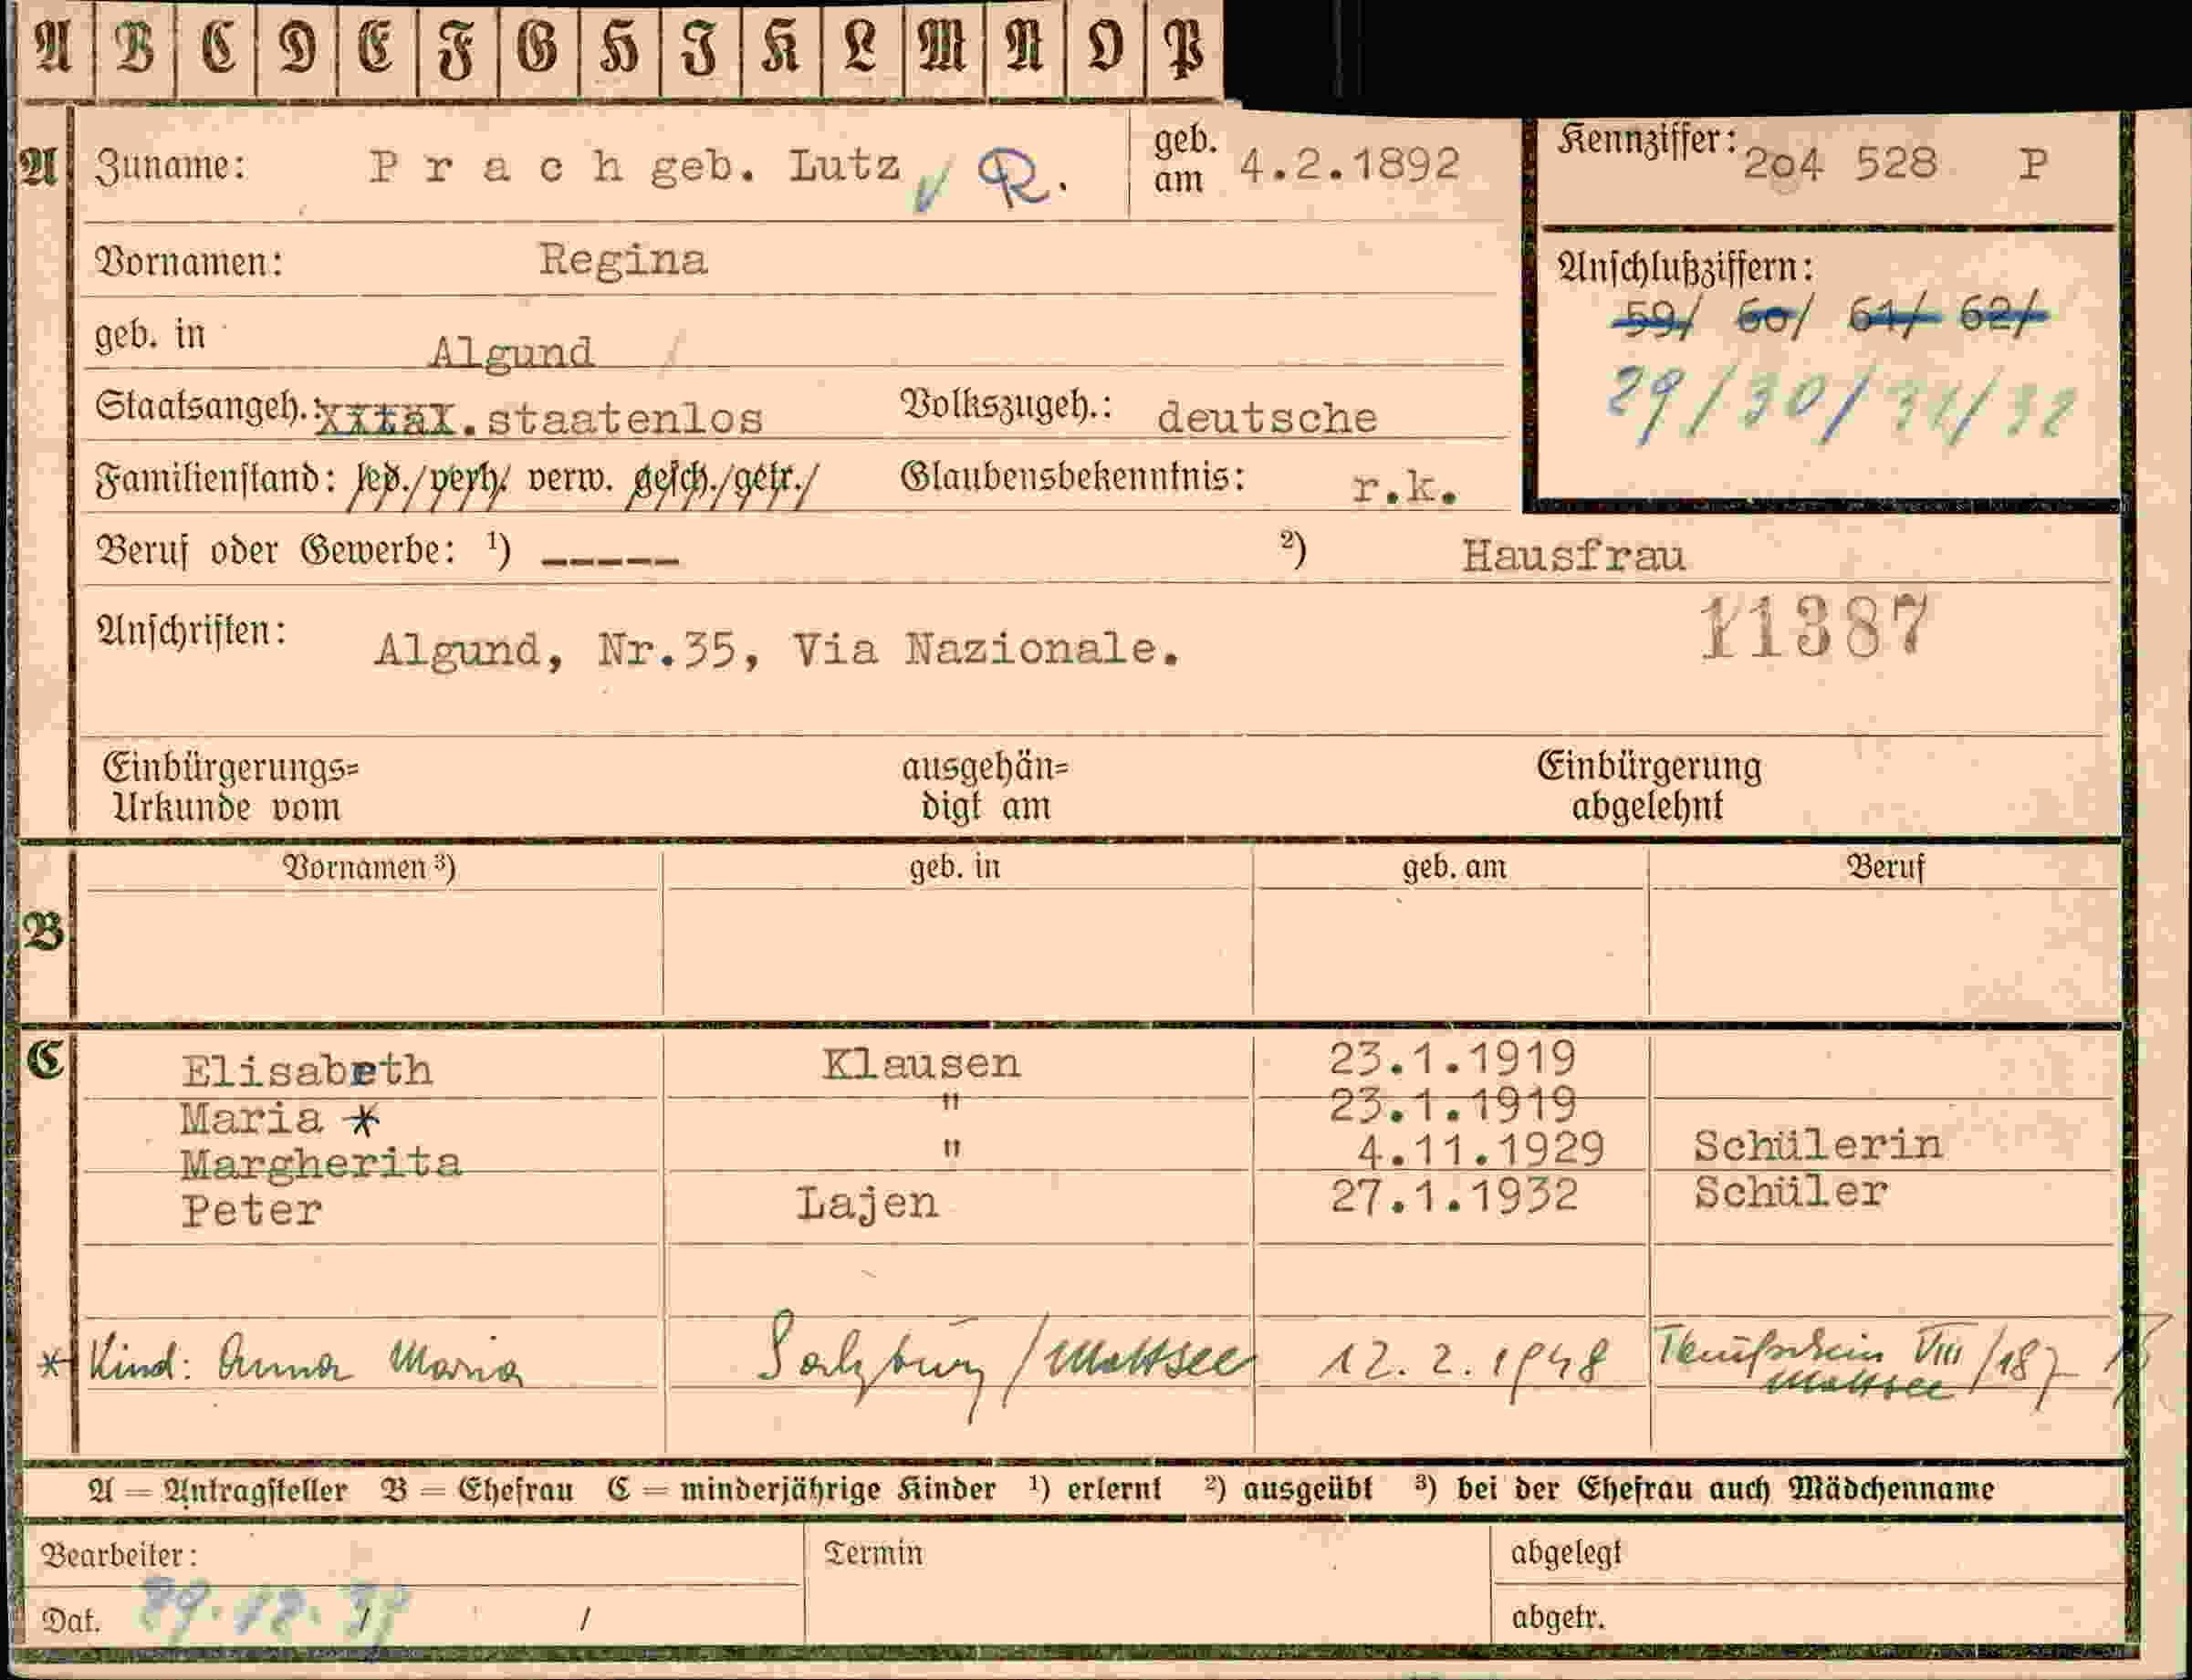 A B C D E F G H I K L M N O P
A Zuname: P r a c h geb. Lutz R. geb. am 4.2.1892 Kennziffer: 204 528 P
Vornamen: Regina
Anschlußziffern:
59/ 60/ 61/ 62/
geb. in Algund
29/30/31/32
Staatsangeh.: staatenlos Volkszugeh.: deutsche
Familienstand: led./verh./ verw. gesch./getr./ Glaubensbekenntnis: r.k.
Beruf oder Gewerbe: ¹) ----- ²) Hausfrau
Anschriften: Algund, Nr.35, Via Nazionale. 11387
Einbürgerungs= ausgehän= Einbürgerung
Urkunde vom digt am abgelehnt
Vornamen ³) geb. in geb. am Beruf
B
C Elisabeth Klausen 23.1.1919
Maria * " 23.1.1919
Margherita " 4.11.1929 Schülerin
Peter Lajen 27.1.1932 Schüler
* Kind: Anna Maria Salzburg / Mattsee 12.2.1948 Taufschein VIII/187
Mattsee
A = Antragsteller B = Ehefrau C = minderjährige Kinder ¹) erlernt ²) ausgeübt ³) bei der Ehefrau auch Mädchenname
Bearbeiter: Termin abgelegt
Dat. 29.12.39 / / abgetr.